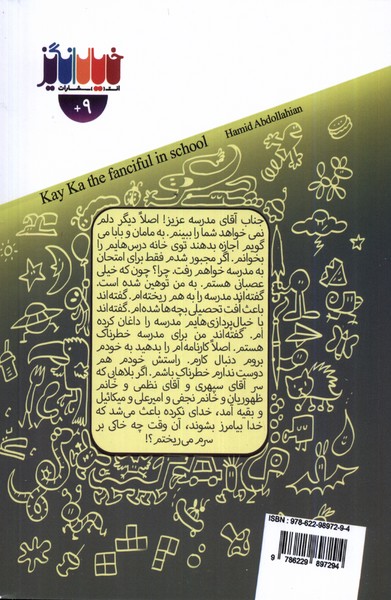 خیال انگیز
انتشارات
+۹
Kay Ka the fanciful in school
Hamid Abdollahian
جناب آقای مدرسه عزیز! اصلاً دیگر دلم
نمی خواهد شما را ببینم. به مامان و بابا می
گویم اجازه بدهند توی خانه درس‌هایم را
بخوانم. اگر مجبور شدم فقط برای امتحان
به مدرسه خواهم رفت. چرا؟ چون که خیلی
عصبانی هستم. به من توهین شده است.
گفته‌اند مدرسه را به هم ریخته‌ام. گفته‌اند
باعث اُفت تحصیلی بچه‌ها شده‌ام. گفته‌اند
با خیال‌پردازی‌هایم مدرسه را داغان کرده
ام. گفته‌اند من برای مدرسه خطرناک
هستم. اصلاً کارنامه‌ام را بدهید به خودم
بروم دنبال کارم. راستش خودم هم
دوست ندارم خطرناک باشم. اگر بلاهای که
سر آقای سپهری و آقای نظمی و خانم
ظهوریان و خانم نجفی و امیرعلی و میکائیل
و بقیه آمد، خدای نکرده باعث می‌شد که
خدا بیامرز بشوند، آن وقت چه خاکی بر
سرم می‌ریختم؟!
ISBN : 978-622-98972-9-4
9 786229 897294